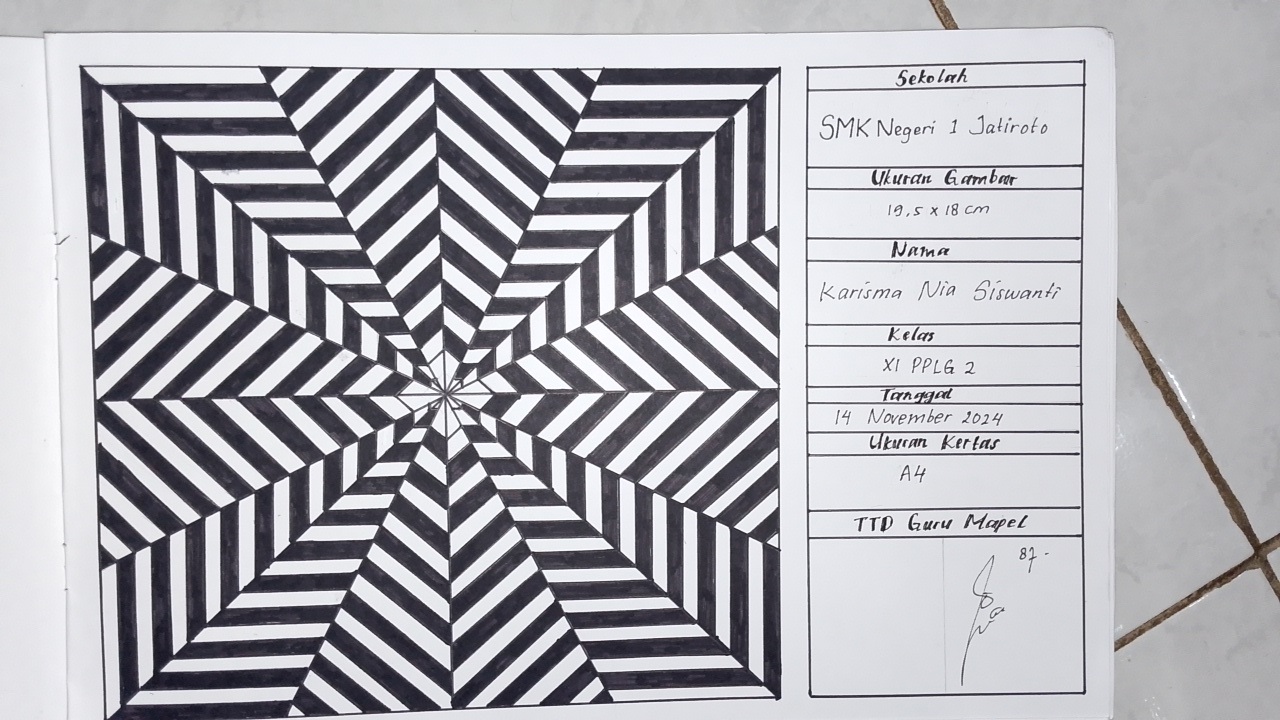 Sekolah
SMK Negeri 1 Jatiroto
Ukuran Gambar
19,5 x 18 cm
Nama
Karisma Nia Siswanti
Kelas
XI PPLG 2
Tanggal
14 November 2024
Ukuran Kertas
A4
TTD Guru Mapel
87 -